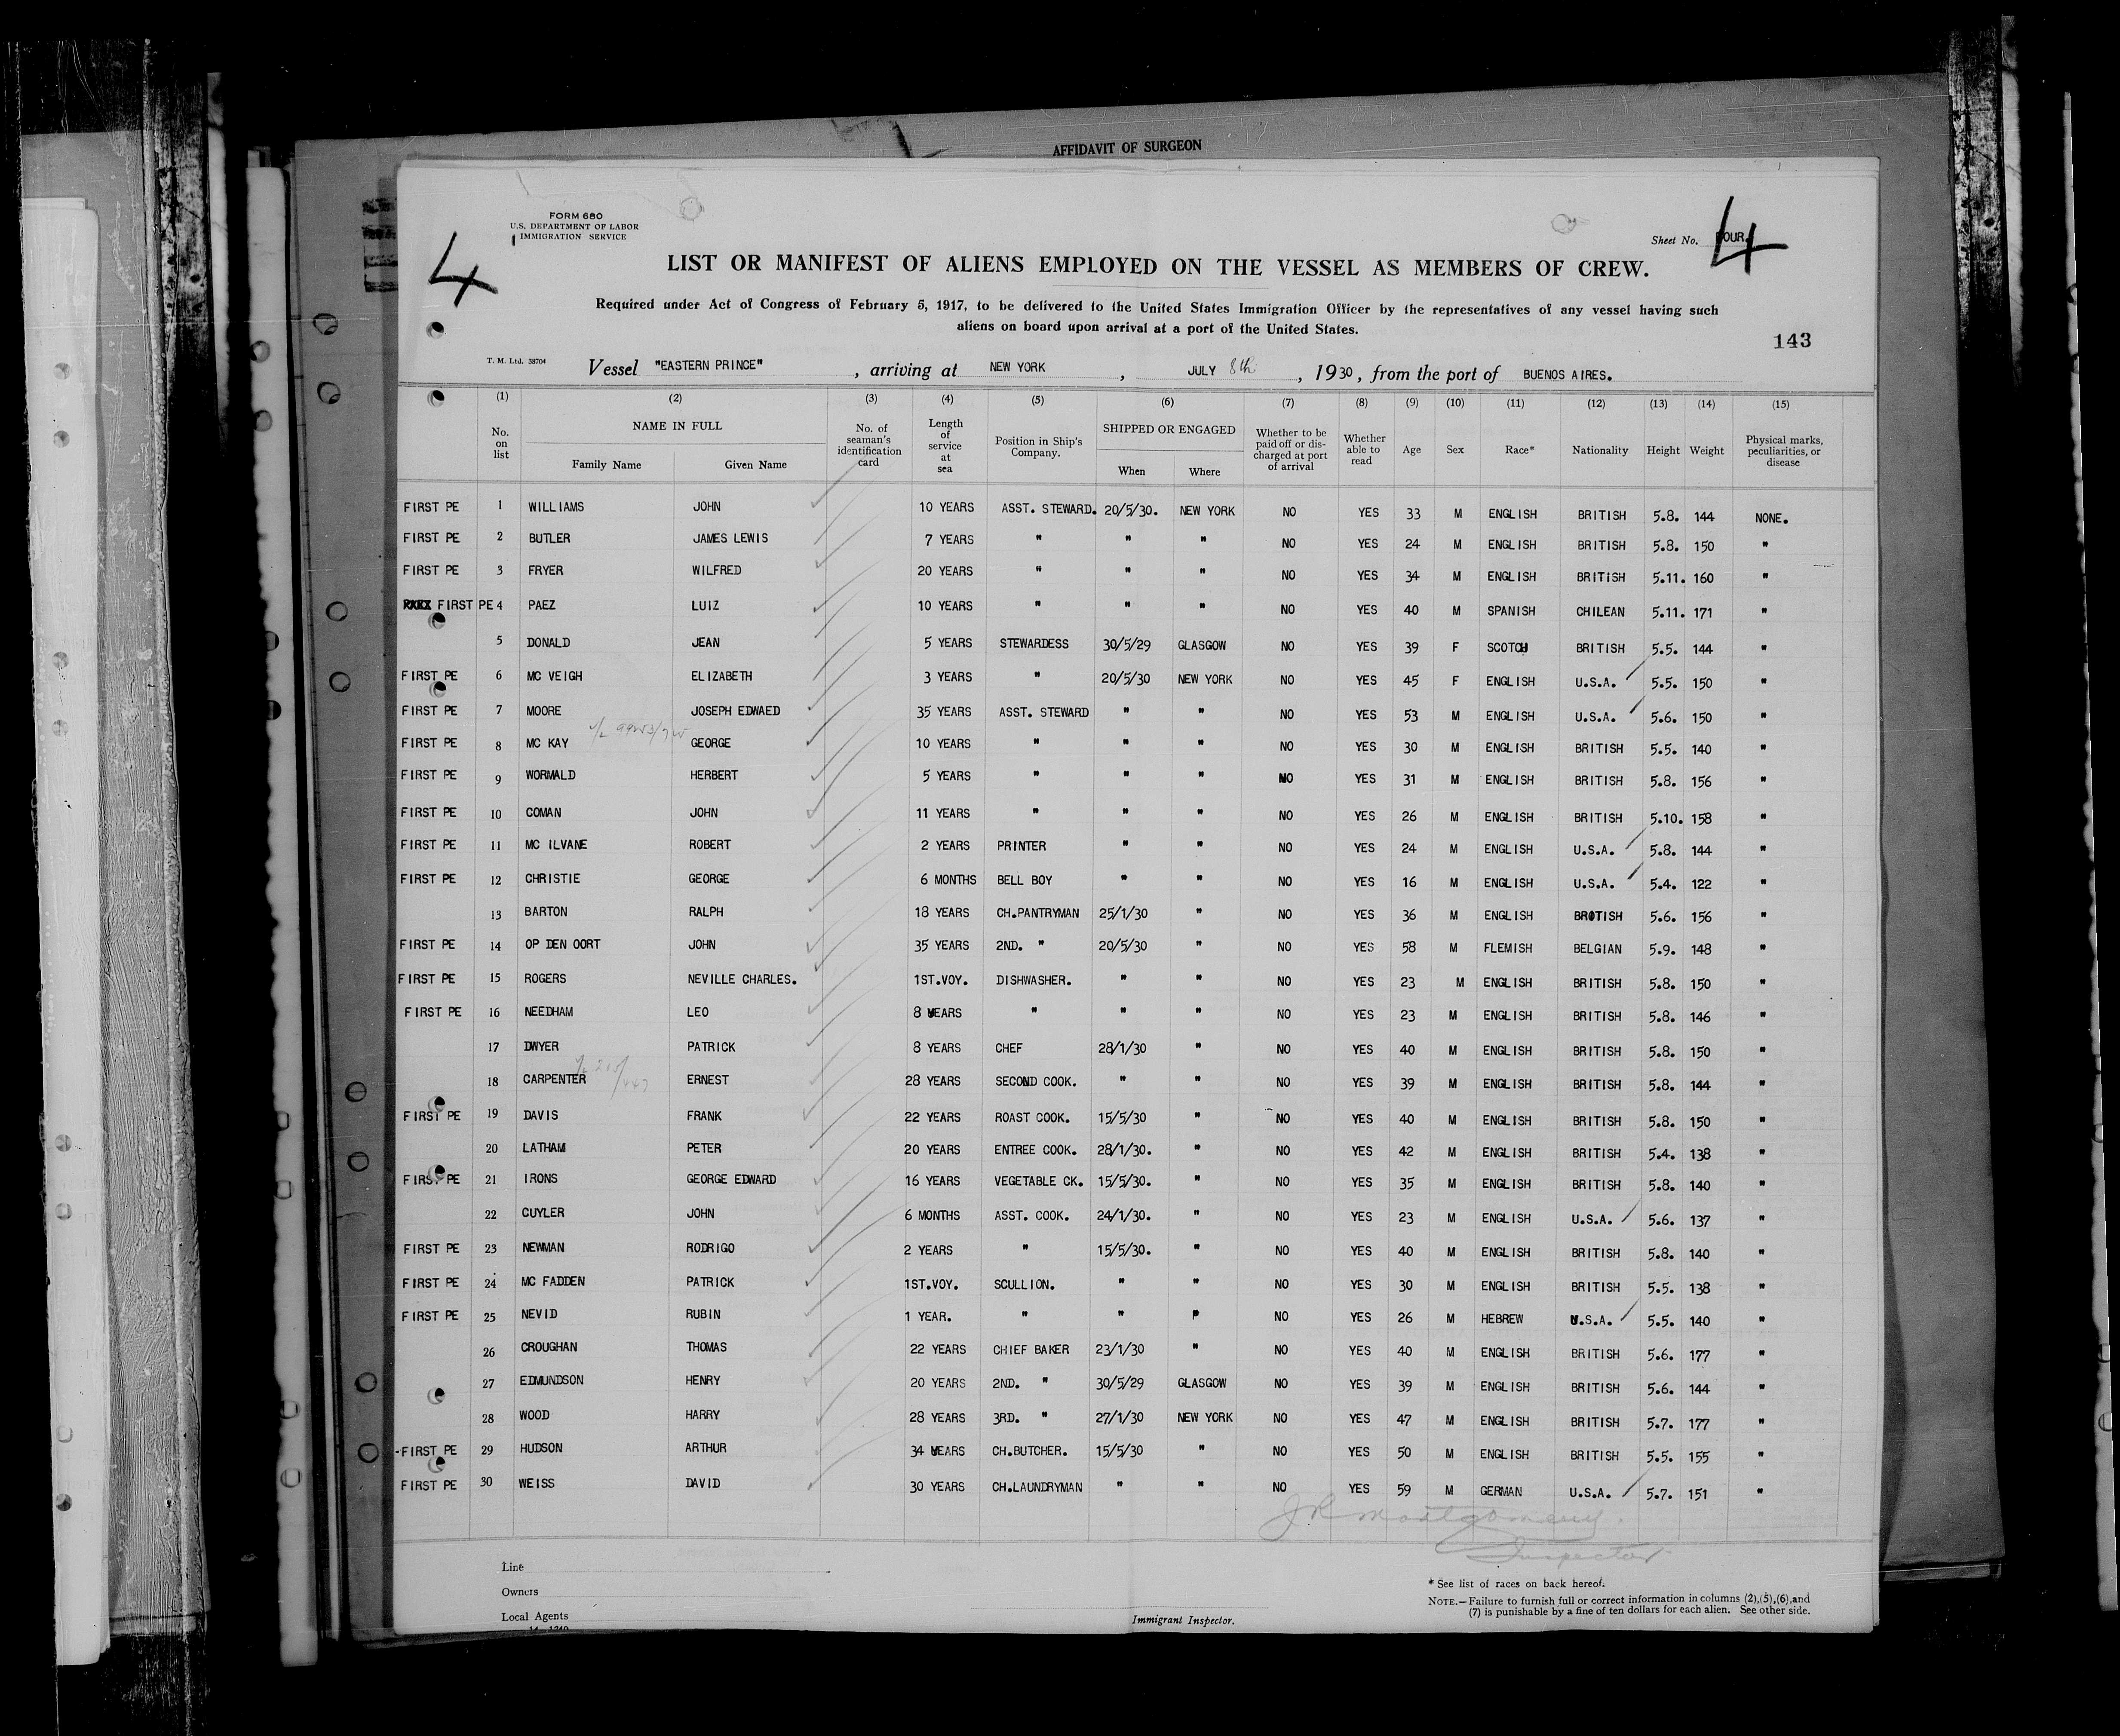 AFFIDAVIT OF SURGEON
FORM 680
U.S. DEPARTMENT OF LABOR
IMMIGRATION SERVICE
4
Sheet No. FOUR. 4
LIST OR MANIFEST OF ALIENS EMPLOYED ON THE VESSEL AS MEMBERS OF CREW.
Required under Act of Congress of February 5, 1917, to be delivered to the United States Immigration Officer by the representatives of any vessel having such
aliens on board upon arrival at a port of the United States.
143
T. M. Ltd. 38704 Vessel "EASTERN PRINCE", arriving at NEW YORK, JULY 8th, 1930, from the port of BUENOS AIRES.
(1) (2) (3) (4) (5) (6) (7) (8) (9) (10) (11) (12) (13) (14) (15)
No. on list NAME IN FULL Family Name Given Name No. of seaman's identification card Length of service at sea Position in Ship's Company. SHIPPED OR ENGAGED When Where Whether to be paid off or discharged at port of arrival Whether able to read Age Sex Race* Nationality Height Weight Physical marks, peculiarities, or disease
FIRST PE 1 WILLIAMS JOHN 10 YEARS ASST. STEWARD. 20/5/30. NEW YORK NO YES 33 M ENGLISH BRITISH 5.8. 144 NONE.
FIRST PE 2 BUTLER JAMES LEWIS 7 YEARS " " " NO YES 24 M ENGLISH BRITISH 5.8. 150 "
FIRST PE 3 FRYER WILFRED 20 YEARS " " " NO YES 34 M ENGLISH BRITISH 5.11. 160 "
FIRST PE 4 PAEZ LUIZ 10 YEARS " " " NO YES 40 M SPANISH CHILEAN 5.11. 171 "
5 DONALD JEAN 5 YEARS STEWARDESS 30/5/29 GLASGOW NO YES 39 F SCOTCH BRITISH 5.5. 144 "
FIRST PE 6 MC VEIGH ELIZABETH 3 YEARS " 20/5/30 NEW YORK NO YES 45 F ENGLISH U.S.A. 5.5. 150 "
FIRST PE 7 MOORE JOSEPH EDWAED 35 YEARS ASST. STEWARD " " NO YES 53 M ENGLISH U.S.A. 5.6. 150 "
FIRST PE 8 MC KAY GEORGE 10 YEARS " " " NO YES 30 M ENGLISH BRITISH 5.5. 140 "
FIRST PE 9 WORMALD HERBERT 5 YEARS " " " NO YES 31 M ENGLISH BRITISH 5.8. 156 "
FIRST PE 10 COMAN JOHN 11 YEARS " " " NO YES 26 M ENGLISH BRITISH 5.10. 158 "
FIRST PE 11 MC ILVANE ROBERT 2 YEARS PRINTER " " NO YES 24 M ENGLISH U.S.A. 5.8. 144 "
FIRST PE 12 CHRISTIE GEORGE 6 MONTHS BELL BOY " " NO YES 16 M ENGLISH U.S.A. 5.4. 122 "
13 BARTON RALPH 18 YEARS CH.PANTRYMAN 25/1/30 " NO YES 36 M ENGLISH BROTISH 5.6. 156 "
FIRST PE 14 OP DEN OORT JOHN 35 YEARS 2ND. " 20/5/30 " NO YES 58 M FLEMISH BELGIAN 5.9. 148 "
FIRST PE 15 ROGERS NEVILLE CHARLES. 1ST.VOY. DISHWASHER. " " NO YES 23 M ENGLISH BRITISH 5.8. 150 "
FIRST PE 16 NEEDHAM LEO 8 YEARS " " " NO YES 23 M ENGLISH BRITISH 5.8. 146 "
17 DWYER PATRICK 8 YEARS CHEF 28/1/30 " NO YES 40 M ENGLISH BRITISH 5.8. 150 "
18 CARPENTER ERNEST 28 YEARS SECOND COOK. " " NO YES 39 M ENGLISH BRITISH 5.8. 144 "
FIRST PE 19 DAVIS FRANK 22 YEARS ROAST COOK. 15/5/30 " NO YES 40 M ENGLISH BRITISH 5.8. 150 "
20 LATHAM PETER 20 YEARS ENTREE COOK. 28/1/30. " NO YES 42 M ENGLISH BRITISH 5.4. 138 "
FIRST PE 21 IRONS GEORGE EDWARD 16 YEARS VEGETABLE CK. 15/5/30. " NO YES 35 M ENGLISH BRITISH 5.8. 140 "
22 CUYLER JOHN 6 MONTHS ASST. COOK. 24/1/30. " NO YES 23 M ENGLISH U.S.A. 5.6. 137 "
FIRST PE 23 NEWMAN RODRIGO 2 YEARS " 15/5/30. " NO YES 40 M ENGLISH BRITISH 5.8. 140 "
FIRST PE 24 MC FADDEN PATRICK 1ST.VOY. SCULLION. " " NO YES 30 M ENGLISH BRITISH 5.5. 138 "
FIRST PE 25 NEVID RUBIN 1 YEAR. " " " NO YES 26 M HEBREW U.S.A. 5.5. 140 "
26 CROUGHAN THOMAS 22 YEARS CHIEF BAKER 23/1/30 " NO YES 40 M ENGLISH BRITISH 5.6. 177 "
27 EDMUNDSON HENRY 20 YEARS 2ND. " 30/5/29 GLASGOW NO YES 39 M ENGLISH BRITISH 5.6. 144 "
28 WOOD HARRY 28 YEARS 3RD. " 27/1/30 NEW YORK NO YES 47 M ENGLISH BRITISH 5.7. 177 "
FIRST PE 29 HUDSON ARTHUR 34 YEARS CH.BUTCHER. 15/5/30 " NO YES 50 M ENGLISH BRITISH 5.5. 155 "
FIRST PE 30 WEISS DAVID 30 YEARS CH.LAUNDRYMAN " " NO YES 59 M GERMAN U.S.A. 5.7. 151 "
JR Montgomery.
Inspector
Line
Owners
Local Agents
Immigrant Inspector.
* See list of races on back hereof.
NOTE.—Failure to furnish full or correct information in columns (2),(5),(6),and
(7) is punishable by a fine of ten dollars for each alien. See other side.